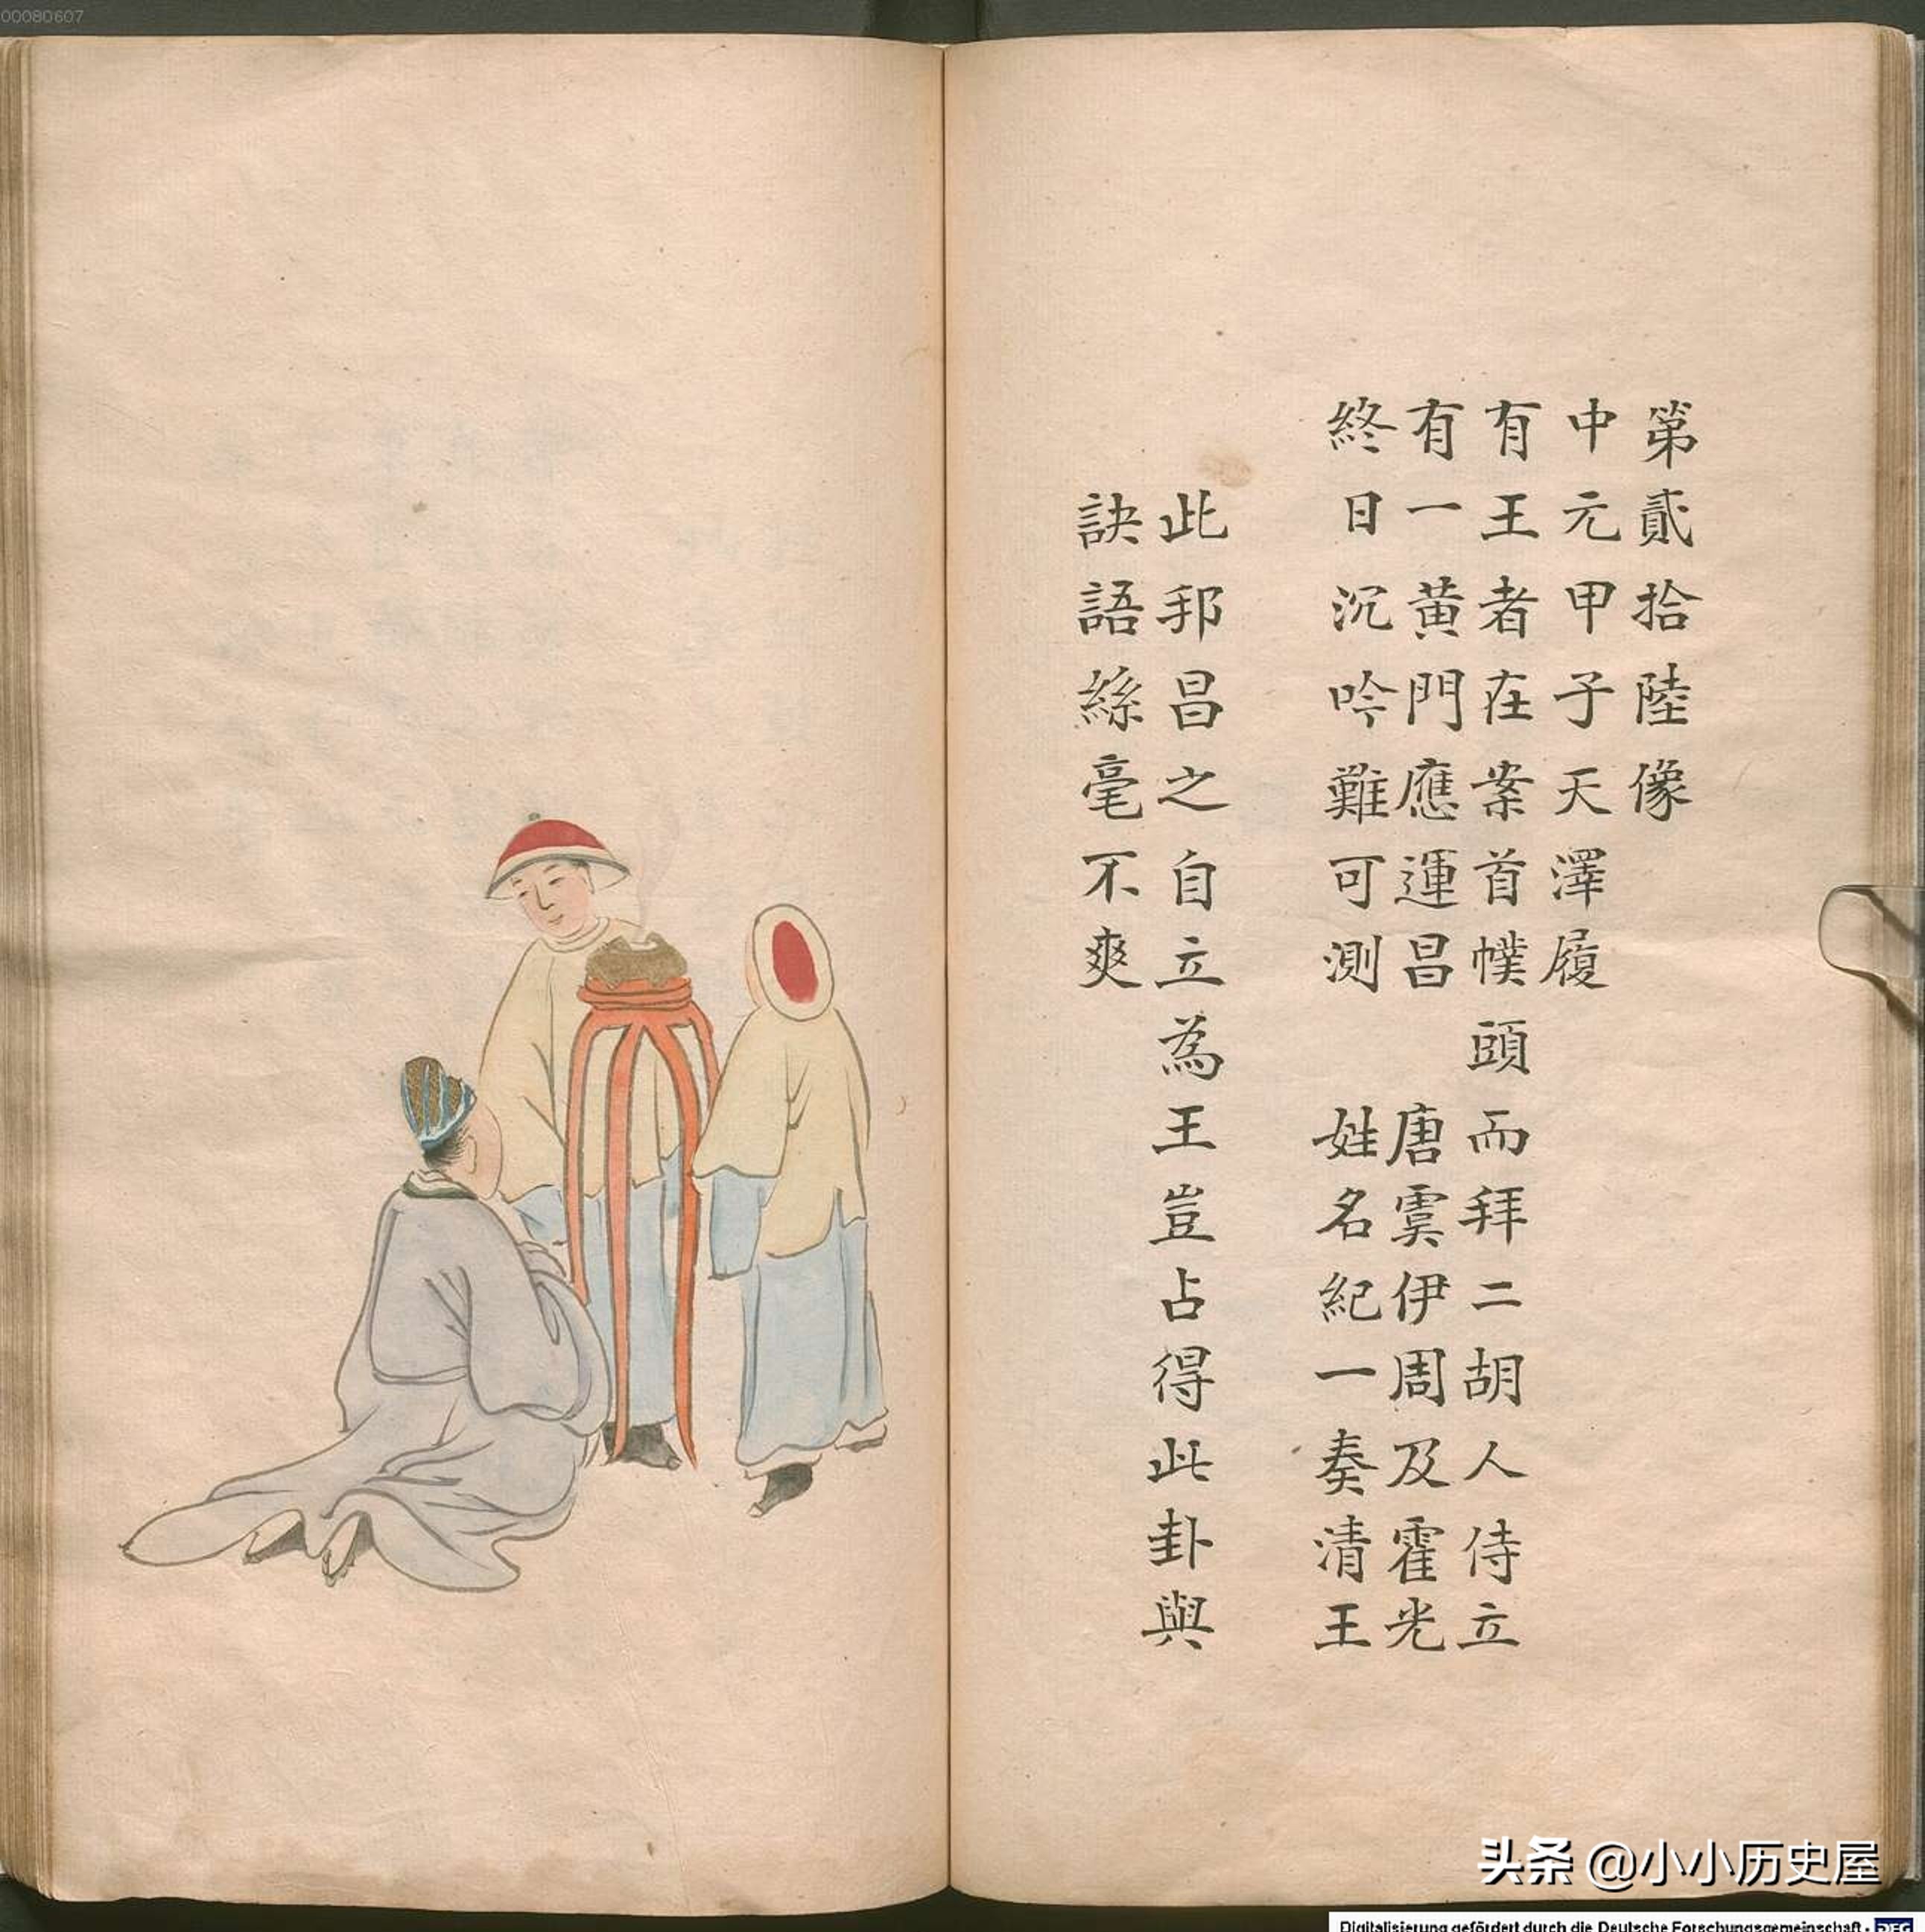 00080607
第貳拾陸像
中元甲子天澤履
有王者在案首幞頭而拜二胡人侍立
有一黃門應運昌　唐虞伊周及霍光
終日沉吟難可測　姓名紀一奏清王
此邦昌之自立為王豈占得此卦與
訣語絲毫不爽
头条 @小小历史屋
Digitalisierung gefördert durch die Deutsche Forschungsgemeinschaft - DFG